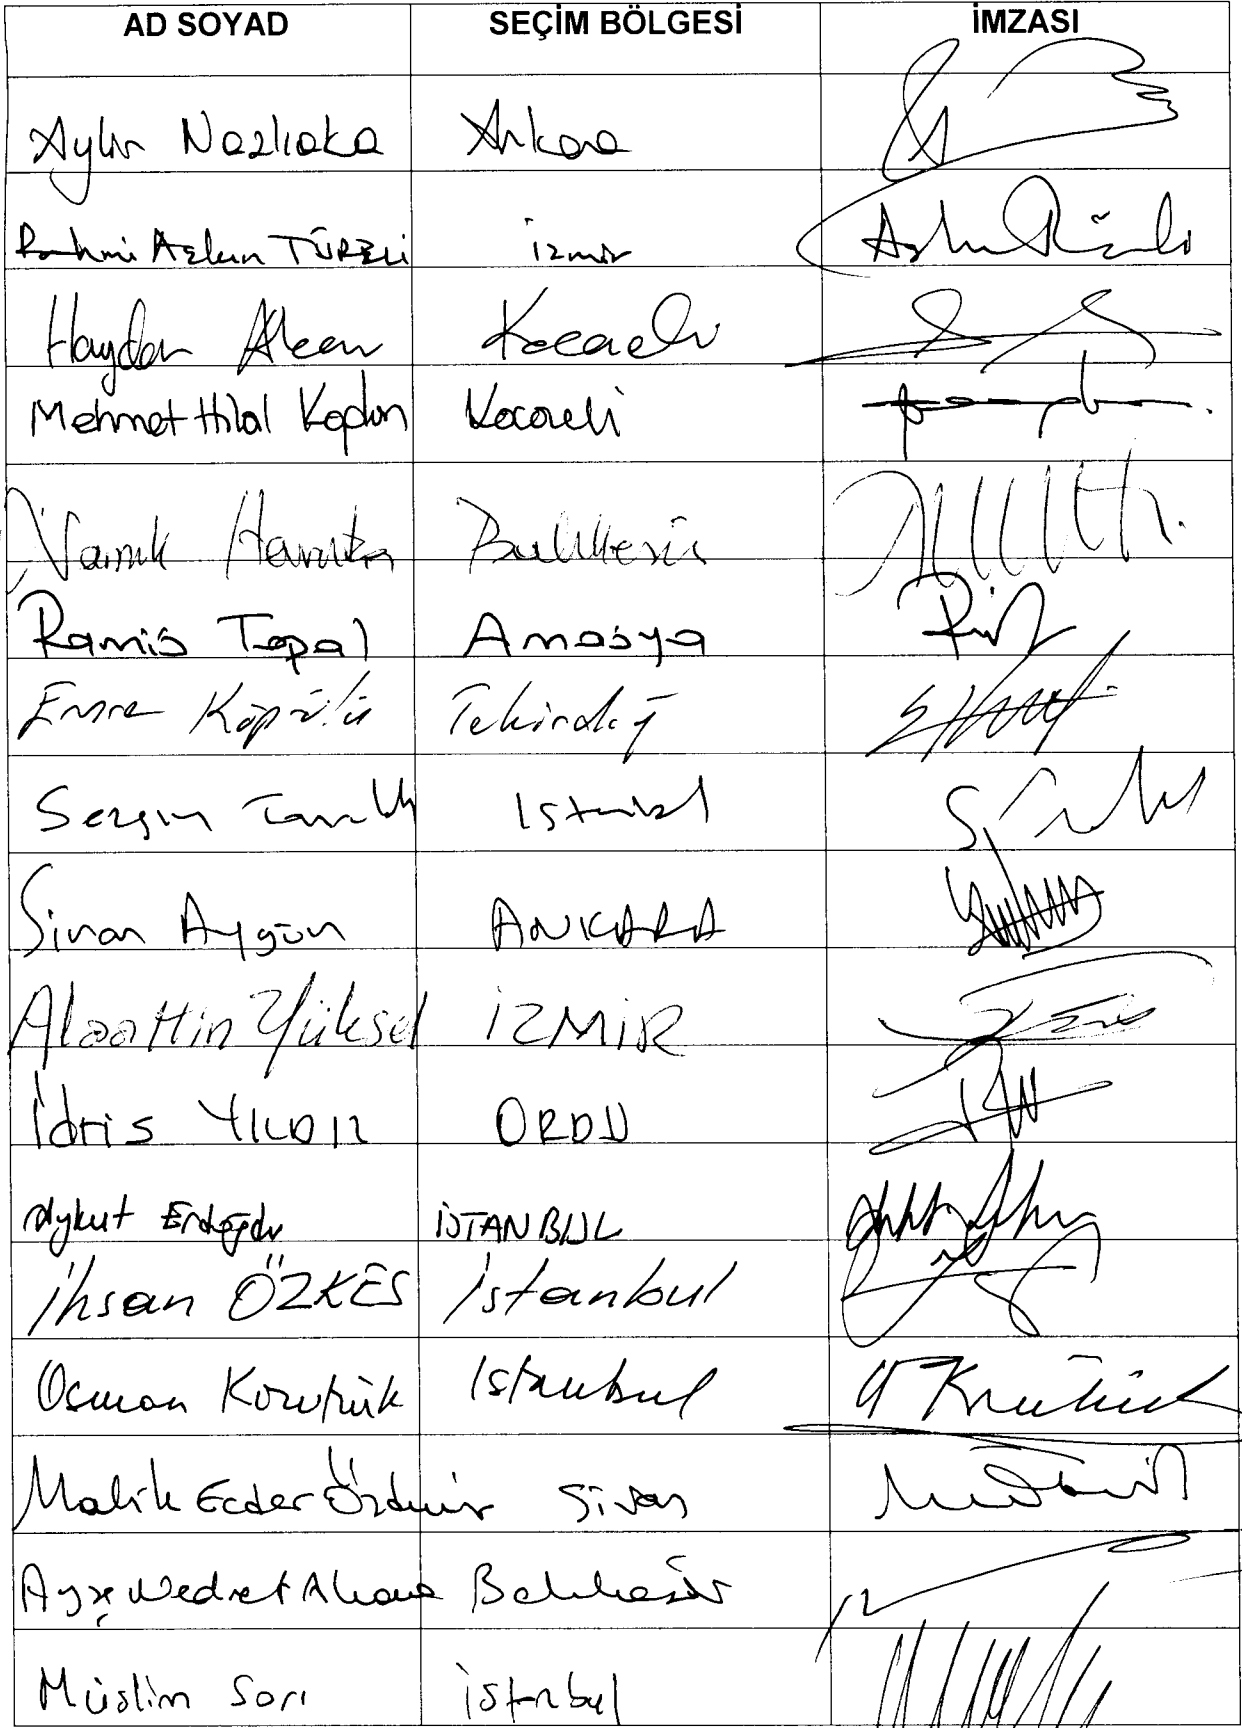 AD SOYAD SEÇİM BÖLGESİ İMZASI
Aylin Nazlıaka Ankara
Rahmi Aşkın TÜRELİ İzmir
Haydar Akar Kocaeli
Mehmet Hilal Kaplan Kocaeli
Namık Havutça Balıkesir
Ramis Topal Amasya
Emre Köprülü Tekirdağ
Sezgin Tanrıkulu İstanbul
Sinan Aygün ANKARA
Alaattin Yüksel İZMİR
İdris YILDIZ ORDU
Aykut Erdoğdu İSTANBUL
İhsan ÖZKES İstanbul
Osman Korutürk İstanbul
Malik Ecder Özdemir Sivas
Ayşe Nedret Akova Balıkesir
Müslim Sarı İstanbul